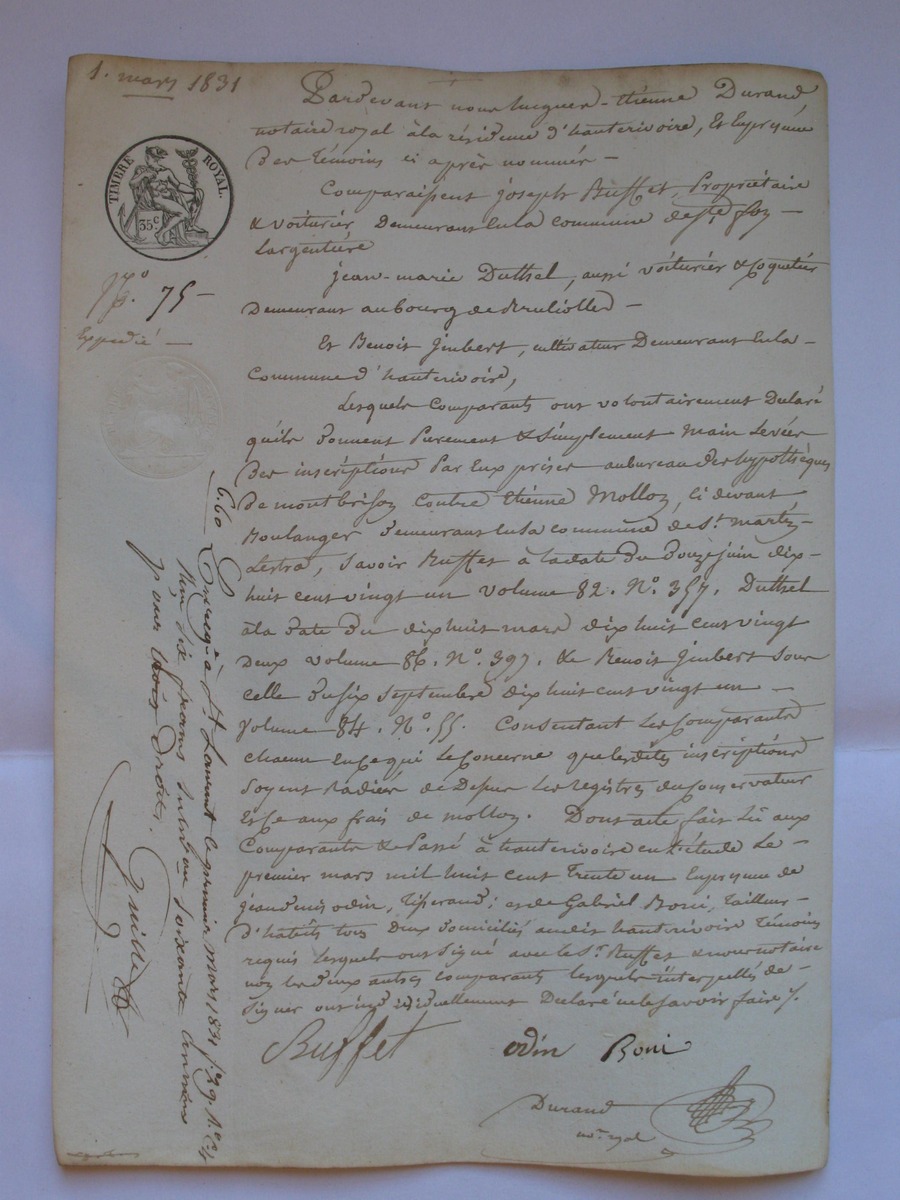 1. mars 1831
TIMBRE ROYAL.
35c
N.o 75 —
Expédié —
Pardevant nous hugues-étienne Durand
notaire royal à la résidence d'hauterivoire, et en présence
des témoins ci après nommés —
Comparaissent joseph Buffet, Propriétaire
& voiturier, demeurant en la commune de Ste foy —
Largentière
jean-marie Duthel, aussi voiturier & coquetier
demeurant au bourg de Brullioles —
Et Benoit jimbert, cultivateur demeurant en la —
commune d'hauterivoire,
Lesquels comparants ont volontairement déclaré
qu'ils donnent Purement & simplement main levée
des inscriptions Par eux prises au bureau des hypothèques
de montbrison contre étienne Mollon, ci devant
Boulanger demeurant en la commune de St. martin-
Lestra, savoir Buffet à la date du douze juin dix-
huit cent vingt un volume 82. No. 357. Duthel
à la date du dix huit mars dix huit cent vingt
deux volume 86. No. 397. & Benoit jimbert sous
celle du six septembre dix huit cent vingt un —
volume 84. No. 55. Consentant les comparants
chacun en ce qui le concerne que lesdites inscriptions
soyent radiées de dessus les registres du conservateur
et ce aux frais de mollon. Dont acte fait lû aux
comparants & Passé à hauterivoire en l'étude le —
premier mars mil huit cent trente un en présence de
jean denis odin, tisserand; et de Gabriel Boni, tailleur-
d'habits tous deux domiciliés audit hauterivoire témoins
requis lesquels ont signé avec le Sr. Buffet & nous notaire
non les deux autres comparants lesquels interpellés de —
signer ont individuellement déclaré ne le savoir faire /.
Buffet odin Boni
Durand
not. royal
6.60 Enregé à St Laurent le premier mars 1831 fo 29 Ro c 4
Reçu six francs subvon soixante centimes
pour trois droits.